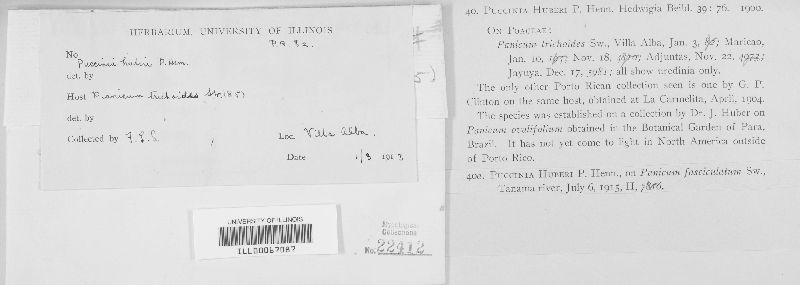 HERBARIUM, UNIVERSITY OF ILLINOIS
P.R. 82
No.
Puccinia huberi P. Hen.
det. by
Host Panicum trichoides Sw. (85)
det. by
Collected by F.L.S. Loc. Villa Alba.
Date 1/3 191
UNIVERSITY OF ILLINOIS
ILLS00067087
Mycological
Collections
No. 22412
5)
40. PUCCINIA HUBERI P. Henn. Hedwigia Beibl. 39: 76. 1900.
ON POACEAE:
Panicum trichoides Sw., Villa Alba, Jan. 3, 85; Maricao,
Jan. 10, Nov. 18, Adjuntas, Nov. 22,
Jayuya, Dec. 17, 5981; all show uredinia only.
The only other Porto Rican collection seen is one by G. P.
Clinton on the same host, obtained at La Carmelita, April, 1904.
The species was established on a collection by Dr. J. Huber on
Panicum ovalifolium obtained in the Botanical Garden of Para,
Brazil. It has not yet come to light in North America outside
of Porto Rico.
40a. PUCCINIA HUBERI P. Henn., on Panicum fasciculatum Sw.,
Tanama river, July 6, 1915, II, 7856.